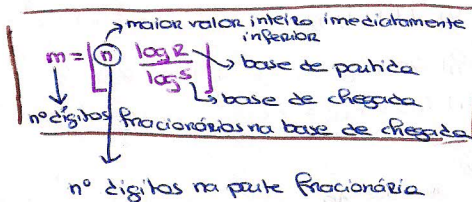 maior valor inteiro imediatamente
inferior
m = ⌊ n log r / log s ⌋
base de partida
base de chegada
nº dígitos fracionários na base de chegada
nº dígitos na parte fracionária